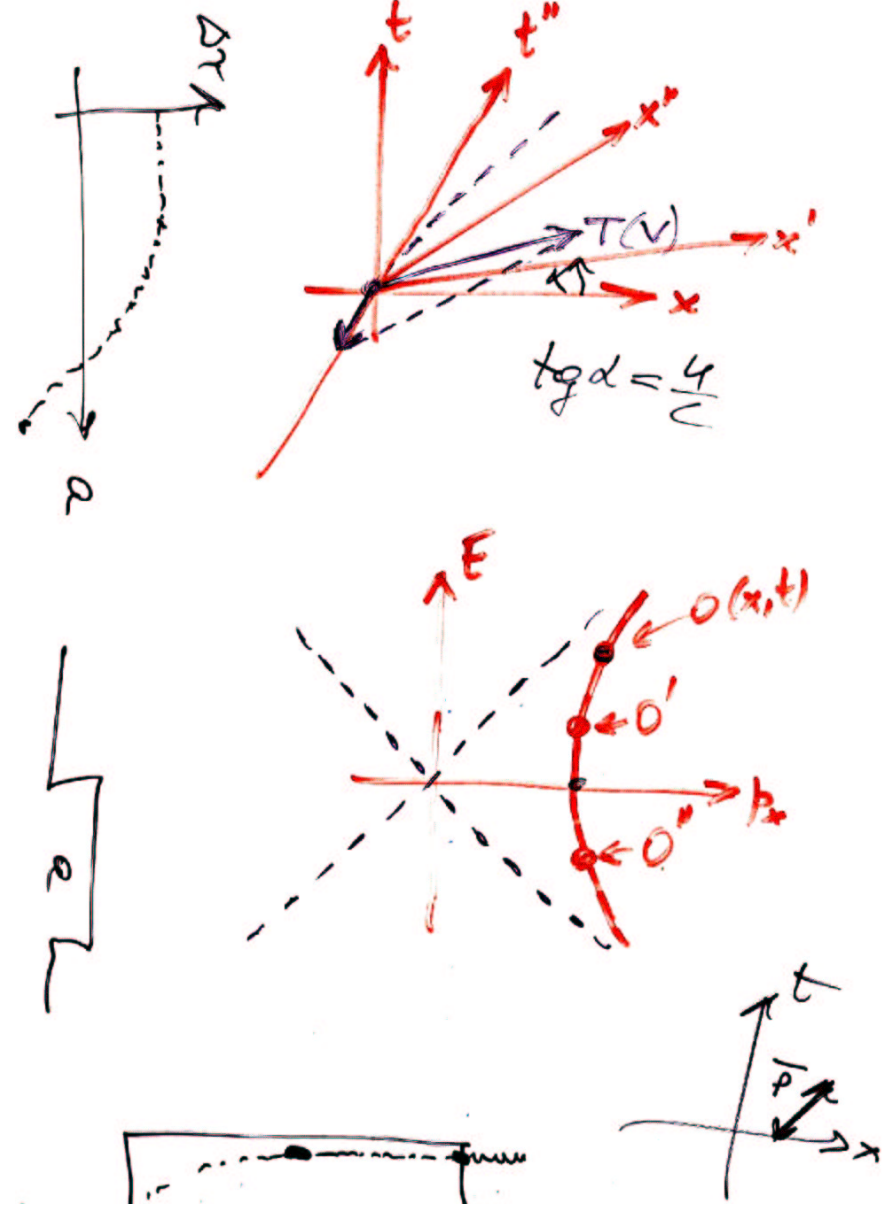 Δτ
t
t"
x"
T(v)
x'
x
tg α = u/c
a
E
O(x,t)
O'
pₓ
O"
a
t
p
x